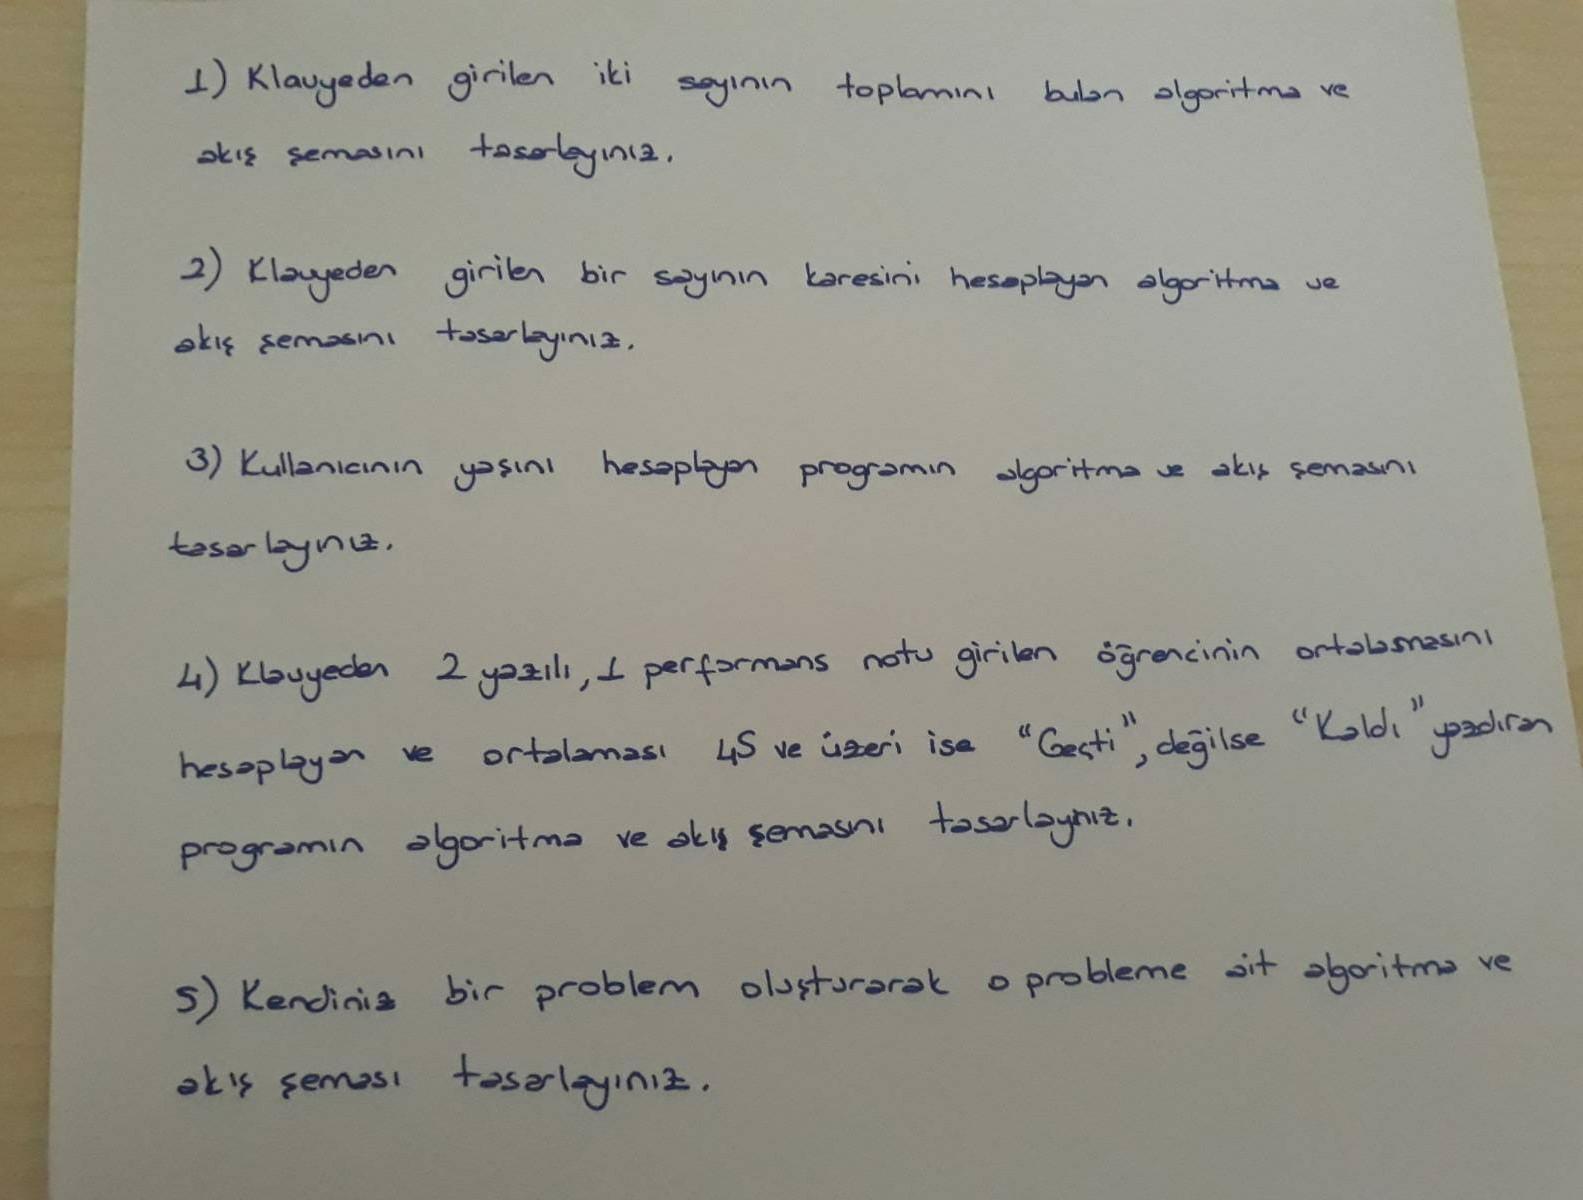 1) Klavyeden girilen iki sayının toplamını bulan algoritma ve
akış şemasını tasarlayınız.
2) Klavyeden girilen bir sayının karesini hesaplayan algoritma ve
akış şemasını tasarlayınız.
3) Kullanıcının yaşını hesaplayan programın algoritma ve akış şemasını
tasarlayınız.
4) Klavyeden 2 yazılı, 1 performans notu girilen öğrencinin ortalamasını
hesaplayan ve ortalaması 45 ve üzeri ise "Geçti", değilse "Kaldı" yazdıran
programın algoritma ve akış şemasını tasarlayınız.
5) Kendiniz bir problem oluşturarak o probleme ait algoritma ve
akış şeması tasarlayınız.